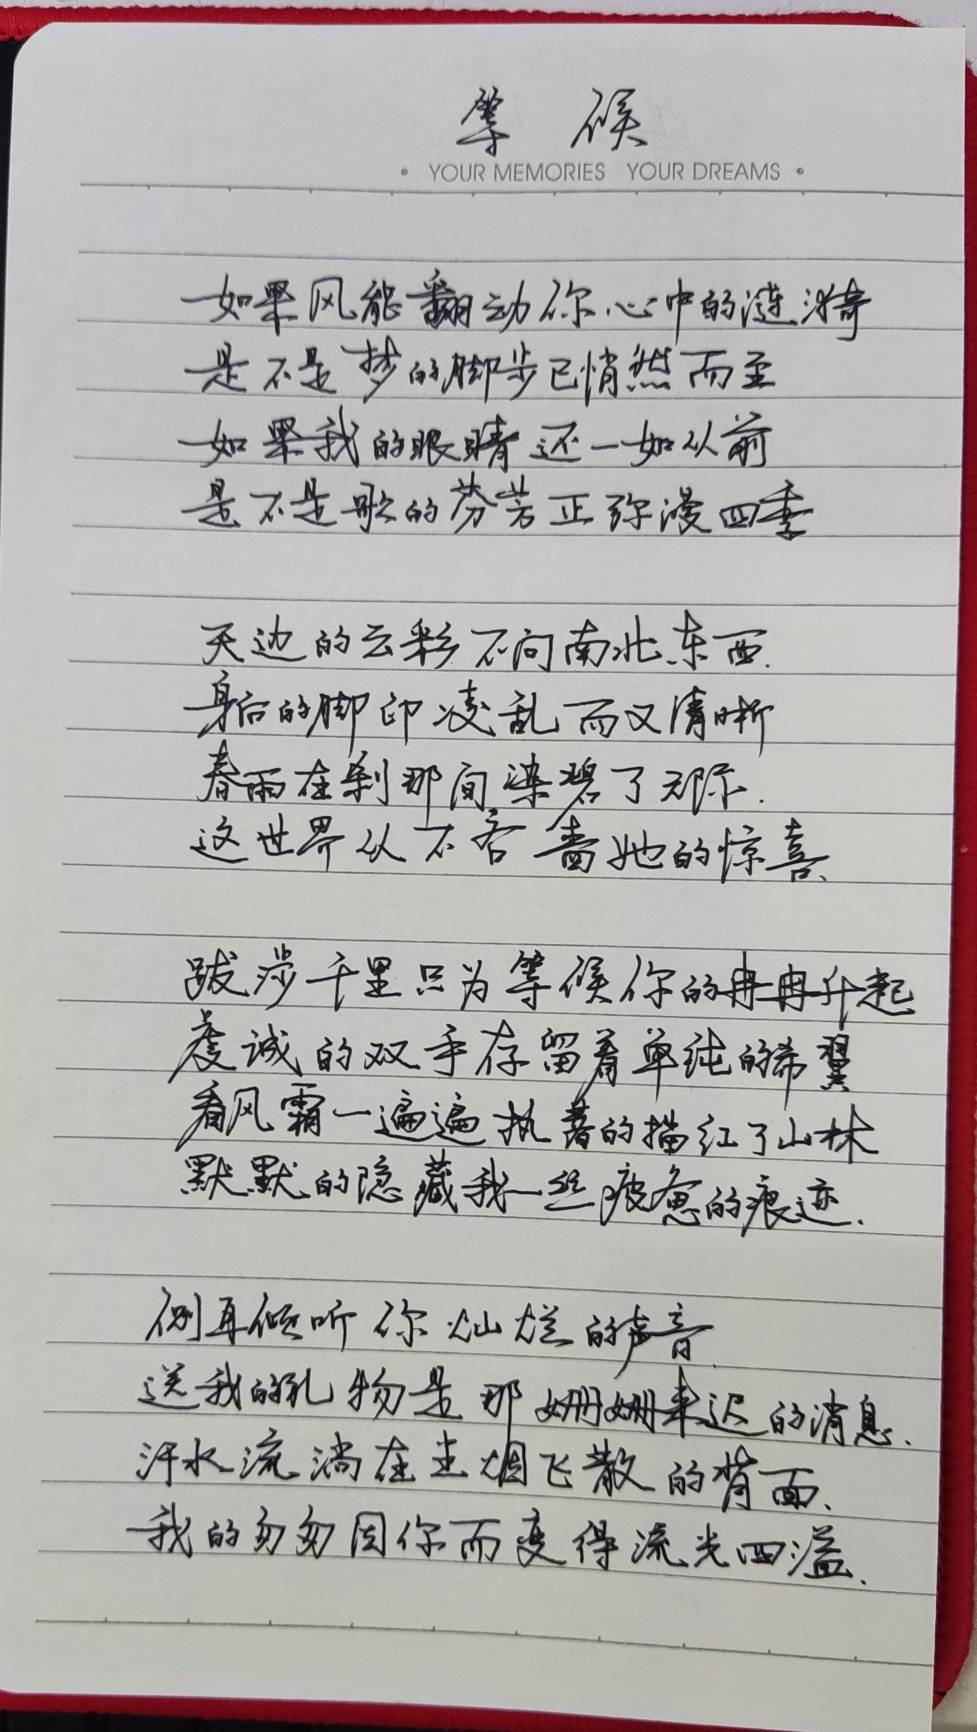 等候
• YOUR MEMORIES YOUR DREAMS •
如果风能翻动你心中的涟漪
是不是梦的脚步已悄然而至
如果我的眼睛还一如从前
是不是歌的芬芳正弥漫四季
天边的云彩不问南北东西.
身后的脚印凌乱而又清晰
春雨在刹那间染碧了无际.
这世界从不吝啬她的惊喜.
跋涉千里只为等候你的冉冉升起
虔诚的双手存留着单纯的希翼
看风霜一遍遍执著的描红了山林
默默的隐藏我一丝疲惫的痕迹.
侧耳倾听你灿烂的声音.
送我的礼物是那姗姗来迟的消息.
汗水流淌在尘烟飞散的背面.
我的匆匆因你而变得流光四溢.